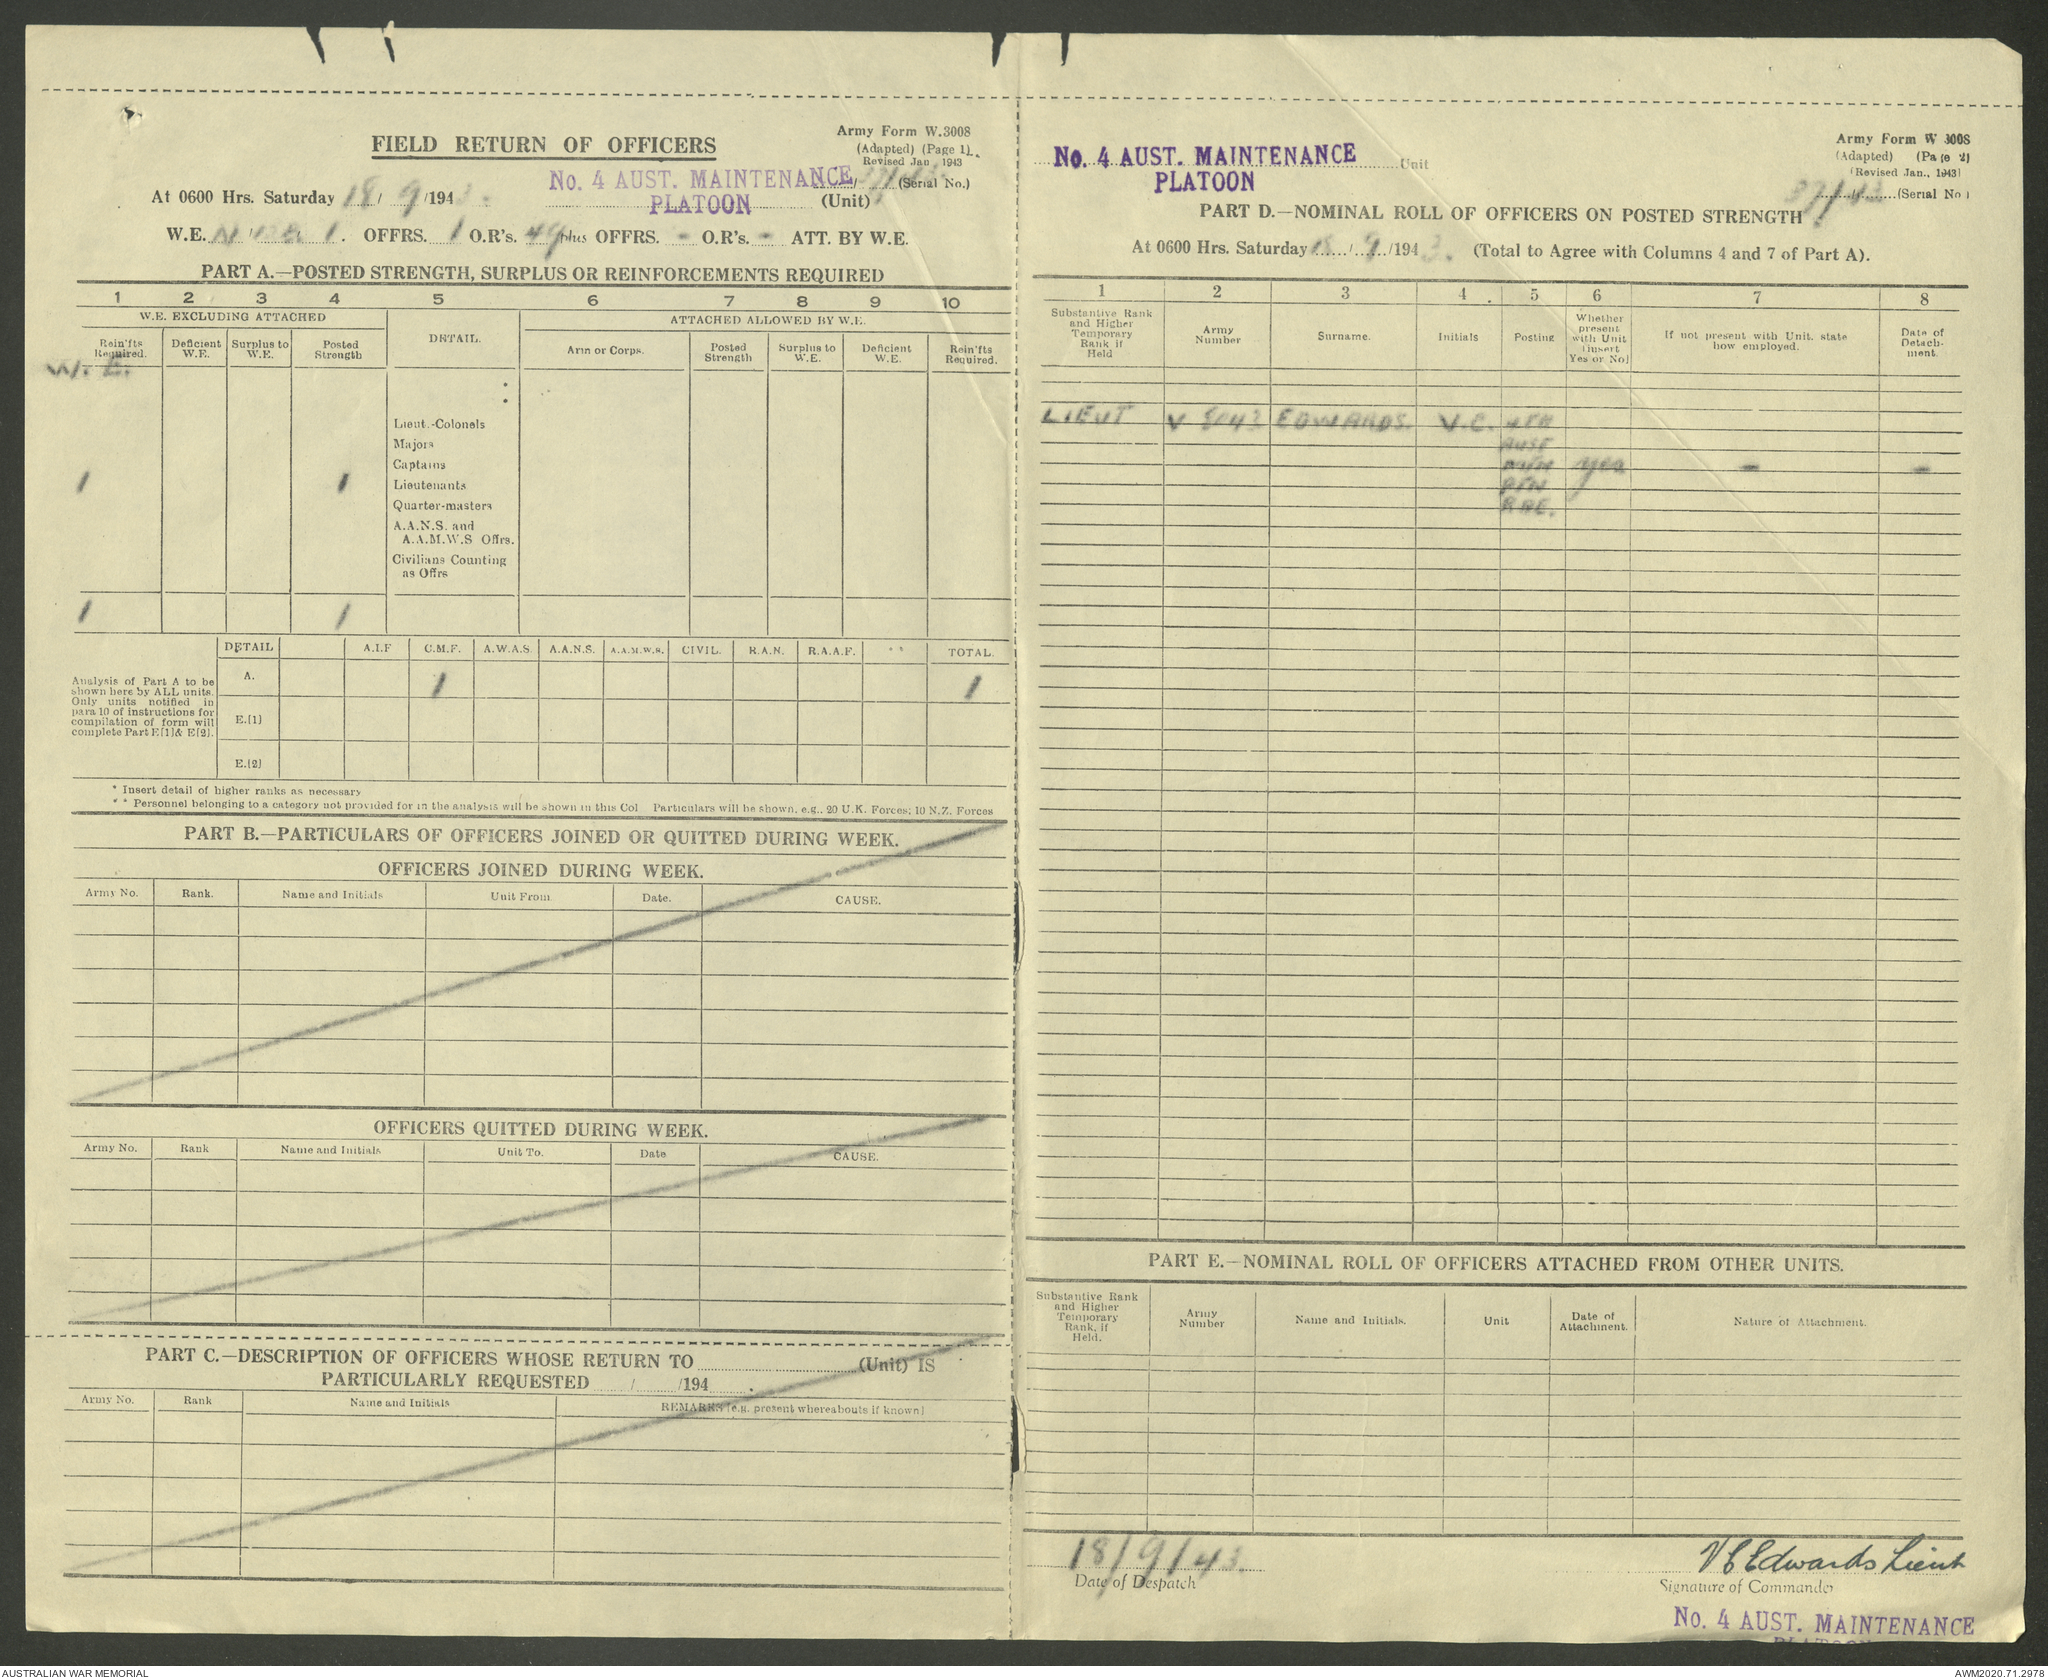 Army Form W.3008
(Adapted) (Page 1)
Revised Jan 1943
FIELD RETURN OF OFFICERS
No. 4 AUST. MAINTENANCE 37/43 (Serial No.)
At 0600 Hrs. Saturday 18/9/1943. PLATOON (Unit)
W.E. 1. OFFRS. 1 O.R's. 49 plus OFFRS. - O.R's. - ATT. BY W.E.
PART A.—POSTED STRENGTH, SURPLUS OR REINFORCEMENTS REQUIRED
1 2 3 4 5 6 7 8 9 10
W.E. EXCLUDING ATTACHED DETAIL. ATTACHED ALLOWED BY W.E.
Rein'fts Required. Deficient W.E. Surplus to W.E. Posted Strength Arm or Corps. Posted Strength Surplus to W.E. Deficient W.E. Rein'fts Required.
W.E.
*
*
Lieut.-Colonels
Majors
Captains
1 1 Lieutenants
Quarter-masters
A.A.N.S. and
A.A.M.W.S Offrs.
Civilians Counting
as Offrs
1 1
DETAIL A.I.F C.M.F. A.W.A.S. A.A.N.S. A.A.M.W.S. CIVIL. R.A.N. R.A.A.F. ** TOTAL.
Analysis of Part A to be
shown here by ALL units.
Only units notified in
para 10 of instructions for
compilation of form will
complete Part E[1]& E[2].
A. 1 1
E.[1]
E.[2]
* Insert detail of higher ranks as necessary
** Personnel belonging to a category not provided for in the analysis will be shown in this Col Particulars will be shown, e.g., 20 U.K. Forces; 10 N.Z. Forces
PART B.—PARTICULARS OF OFFICERS JOINED OR QUITTED DURING WEEK.
OFFICERS JOINED DURING WEEK.
Army No. Rank. Name and Initials Unit From Date. CAUSE.
OFFICERS QUITTED DURING WEEK.
Army No. Rank Name and Initials Unit To. Date CAUSE.
PART C.—DESCRIPTION OF OFFICERS WHOSE RETURN TO (Unit) IS
PARTICULARLY REQUESTED / /194 .
Army No. Rank Name and Initials REMARKS [e.g. present whereabouts if known]
Army Form W 3008
(Adapted) (Page 2)
(Revised Jan., 1943)
No. 4 AUST. MAINTENANCE Unit
PLATOON
37/43 (Serial No)
PART D.—NOMINAL ROLL OF OFFICERS ON POSTED STRENGTH
At 0600 Hrs. Saturday 18/9/1943. (Total to Agree with Columns 4 and 7 of Part A).
1 2 3 4 5 6 7 8
Substantive Rank and Higher Temporary Rank if Held Army Number Surname. Initials Posting Whether present with Unit (insert Yes or No) If not present with Unit. state how employed. Date of Detach-ment.
LIEUT V EDWARDS. V.C. 4TH
AUST
MTN yes - -
PTN
RAE.
PART E.—NOMINAL ROLL OF OFFICERS ATTACHED FROM OTHER UNITS.
Substantive Rank and Higher Temporary Rank, if Held. Army Number Name and Initials. Unit Date of Attachment. Nature of Attachment.
18/9/43. V C Edwards Lieut
Date of Despatch Signature of Commander
No. 4 AUST. MAINTENANCE
PLATOON
AUSTRALIAN WAR MEMORIAL AWM2020.71.2978